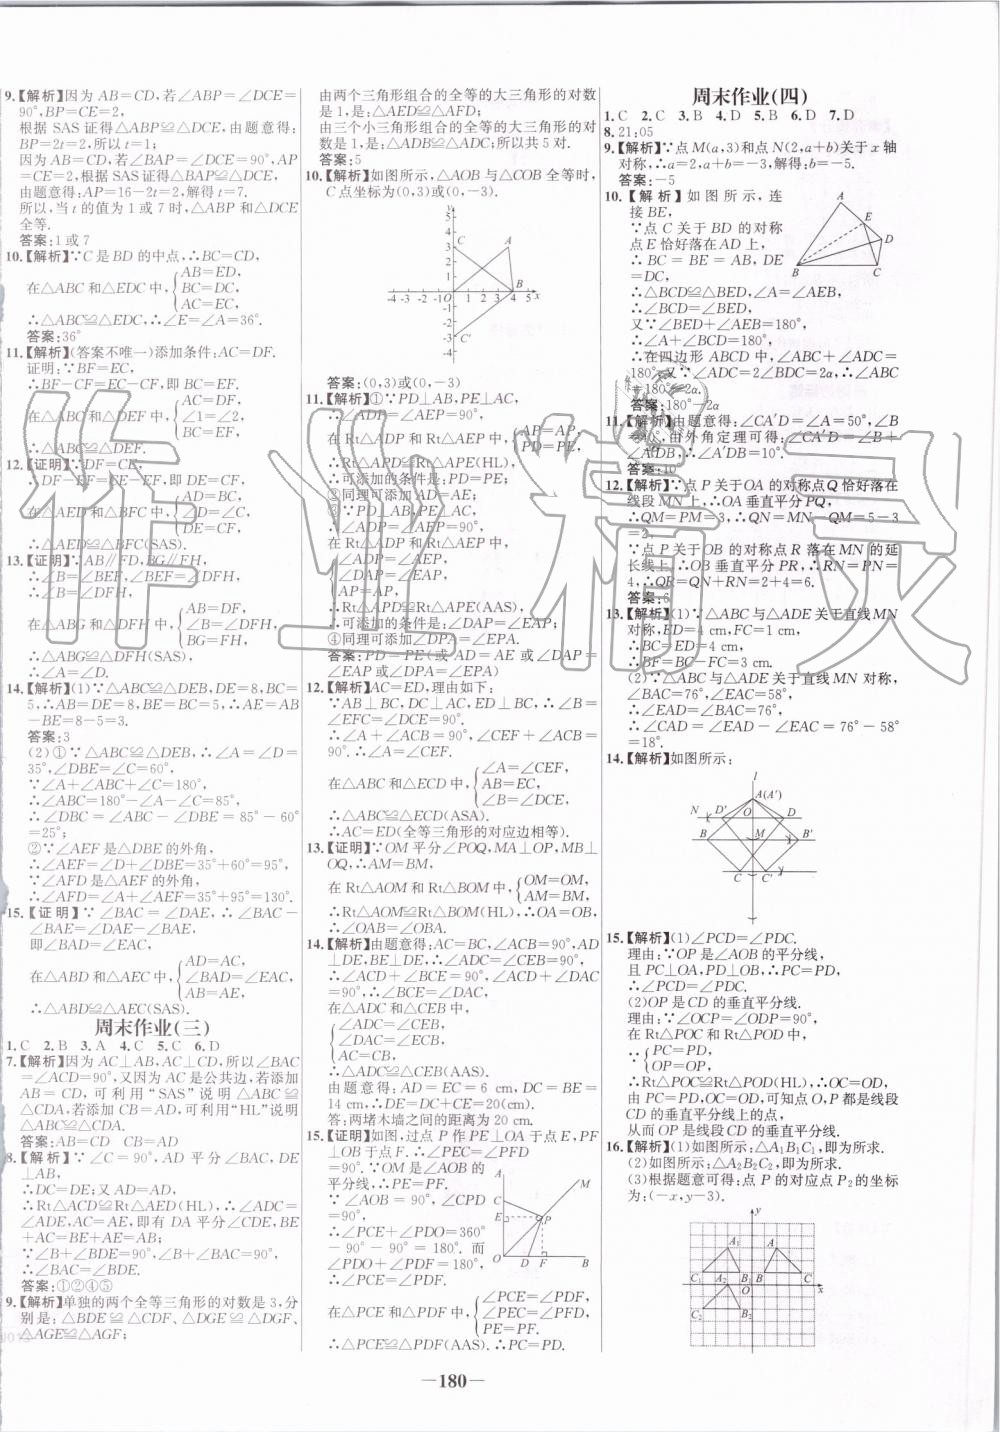 9.【解析】因为AB=CD,若∠ABP=∠DCE=
90°,BP=CE=2,
根据SAS证得△ABP≌△DCE,由题意得:
BP=2t=2,所以t=1;
因为AB=CD,若∠BAP=∠DCE=90°,AP
=CE=2,根据SAS证得△BAP≌△DCE,
由题意得:AP=16-2t=2,解得t=7.
所以,当t的值为1或7时,△ABP和△DCE
全等.
答案:1或7
10.【解析】∵C是BD的中点,∴BC=CD,
在△ABC和△EDC中,
AB=ED,
BC=DC,
AC=EC,
∴△ABC≌△EDC,∴∠E=∠A=36°.
答案:36°
11.【解析】(答案不唯一)添加条件:AC=DF.
证明:∵BF=EC,
∴BF-CF=EC-CF,即BC=EF.
在△ABC和△DEF中,
AC=DF,
∠1=∠2,
BC=EF,
∴△ABC≌△DEF.
12.【证明】∵DF=CE,
∴DF-EF=CE-EF,即DE=CF,
在△AED和△BFC中,
AD=BC,
∠D=∠C,
DE=CF,
∴△AED≌△BFC(SAS).
13.【证明】∵AB∥FD,BG∥FH,
∴∠B=∠BEF,∠BEF=∠DFH,
∴∠B=∠DFH,
在△ABG和△DFH中,
AB=DF,
∠B=∠DFH,
BG=FH,
∴△ABG≌△DFH(SAS),
∴∠A=∠D.
14.【解析】(1)∵△ABC≌△DEB,DE=8,BC=
5,∴AB=DE=8,BE=BC=5,∴AE=AB
-BE=8-5=3.
答案:3
(2)①∵△ABC≌△DEB,∴∠A=∠D=
35°,∠DBE=∠C=60°,
∵∠A+∠ABC+∠C=180°,
∴∠ABC=180°-∠A-∠C=85°,
∴∠DBC=∠ABC-∠DBE=85°-60°
=25°;
②∵∠AEF是△DBE的外角,
∴∠AEF=∠D+∠DBE=35°+60°=95°,
∵∠AFD是△AEF的外角,
∴∠AFD=∠A+∠AEF=35°+95°=130°.
15.【证明】∵∠BAC=∠DAE,∴∠BAC-
∠BAE=∠DAE-∠BAE,
即∠BAD=∠EAC,
在△ABD和△AEC中,
AD=AC,
∠BAD=∠EAC,
AB=AE,
∴△ABD≌△AEC(SAS).
周末作业(三)
1.C 2.B 3.A 4.C 5.C 6.D
7.【解析】因为AC⊥AB,AC⊥CD,所以∠BAC
=∠ACD=90°,又因为AC是公共边,若添加
AB=CD,可利用“SAS”说明△ABC≌
△CDA,若添加CB=AD,可利用“HL”说明
△ABC≌△CDA.
答案:AB=CD CB=AD
8.【解析】∵∠C=90°,AD平分∠BAC,DE
⊥AB,
∴DC=DE;又∵AD=AD,
∴Rt△ACD≌Rt△AED(HL),∴∠ADC=
∠ADE,AC=AE,即有DA平分∠CDE,BE
+AC=BE+AE=AB;
∵∠B+∠BDE=90°,∠B+∠BAC=90°,
∴∠BAC=∠BDE.
答案:①②④⑤
9.【解析】单独的两个全等三角形的对数是3,分
别是:△BDE≌△CDF、△DGE≌△DGF、
△AGE≌△AGF;
由两个三角形组合的全等的大三角形的对数
是1,是:△AED≌△AFD;
由三个小三角形组合的全等的大三角形的对
数是1,是:△ADB≌△ADC;所以共5对.
答案:5
10.【解析】如图所示,△AOB与△COB全等时,
C点坐标为(0,3)或(0,-3).
y
5
4
C 3 A
2
1
B
-4 -3 -2 -1 O 1 2 3 4 5 x
-1
-2
C -3
-4
答案:(0,3)或(0,-3)
11.【解析】①∵PD⊥AB,PE⊥AC,
∴∠ADP=∠AEP=90°,
在Rt△ADP和Rt△AEP中,
AP=AP,
PD=PE,
∴Rt△APD≌Rt△APE(HL),
∴可添加的条件是:PD=PE;
②同理可添加AD=AE;
③∵PD⊥AB,PE⊥AC,
∴∠ADP=∠AEP=90°,
∠ADP=∠AEP,
∠DAP=∠EAP,
AP=AP,
∴Rt△APD≌Rt△APE(AAS),
∴可添加的条件是:∠DAP=∠EAP;
④同理可添加∠DPA=∠EPA.
答案:PD=PE(或AD=AE或∠DAP=
∠EAP或∠DPA=∠EPA)
12.【解析】AC=ED,理由如下:
∵AB⊥BC,DC⊥AC,ED⊥BC,∴∠B=
∠EFC=∠DCE=90°.
∴∠A+∠ACB=90°,∠CEF+∠ACB=
90°.∴∠A=∠CEF.
在△ABC和△ECD中,
∠A=∠CEF,
AB=EC,
∠B=∠DCE,
∴△ABC≌△ECD(ASA).
∴AC=ED(全等三角形的对应边相等).
13.【证明】∵OM平分∠POQ,MA⊥OP,MB⊥
OQ,∴AM=BM,
在Rt△AOM和Rt△BOM中,
OM=OM,
AM=BM,
∴Rt△AOM≌Rt△BOM(HL),∴OA=OB,
∴∠OAB=∠OBA.
14.【解析】由题意得:AC=BC,∠ACB=90°,AD
⊥DE,BE⊥DE,∴∠ADC=∠CEB=90°,
∴∠ACD+∠BCE=90°,∠ACD+∠DAC
=90°,∴∠BCE=∠DAC,
在△ADC和△CEB中,
∠ADC=∠CEB,
∠DAC=∠ECB,
AC=CB,
∴△ADC≌△CEB(AAS);
由题意得:AD=EC=6 cm,DC=BE=
14 cm,∴DE=DC+CE=20(cm).
答:两堵木墙之间的距离为20 cm.
15.【证明】如图,过点P作PE⊥OA于点E,PF
⊥OB于点F.∴∠PEC=∠PFD
=90°.∵OM是∠AOB的
平分线,∴PE=PF.
∵∠AOB=90°,∠CPD
=90°,
∴∠PCE+∠PDO=360°
-90°-90°=180°.而
∠PDO+∠PDF=180°,
∴∠PCE=∠PDF,
A M
C
E P
O D F B
在△PCE和△PDF中,
∠PCE=∠PDF,
∠PEC=∠PFD,
PE=PF.
∴△PCE≌△PDF(AAS).∴PC=PD.
周末作业(四)
1.C 2.C 3.B 4.D 5.B 6.D 7.D
8.21:05
9.【解析】∵点M(a,3)和点N(2,a+b)关于x轴
对称,∴a=2,a+b=-3,解得:b=-5.
答案:-5
10.【解析】如图所示,连
接BE,
∵点C关于BD的对称
点E恰好落在AD上,
∴BC=BE=AB,DE
=DC,
∴△BCD≌△BED,∠A=∠AEB,
∴∠BCD=∠BED,
又∵∠BED+∠AEB=180°,
∴∠A+∠BCD=180°,
∴在四边形ABCD中,∠ABC+∠ADC=
180°,又∵∠ADC=2∠BDC=2α,∴∠ABC
=180°-2α.
答案:180°-2α
A
E
D
B C
11.【解析】由题意得:∠CA′D=∠A=50°,∠B
=40°,由外角定理可得:∠CA′D=∠B+
∠A′DB,∴∠A′DB=10°.
答案:10
12.【解析】∵点P关于OA的对称点Q恰好落在
线段MN上,∴OA垂直平分PQ,
∴QM=PM=3,∴QN=MN-QM=5-3
=2,
∵点P关于OB的对称点R落在MN的延
长线上,∴OB垂直平分PR,∴RN=PN=
4,∴QR=QN+RN=2+4=6.
答案:6
13.【解析】(1)∵△ABC与△ADE关于直线MN
对称,ED=4 cm,FC=1 cm,
∴BC=ED=4 cm,
∴BF=BC-FC=3 cm.
(2)∵△ABC与△ADE关于直线MN对称,
∠BAC=76°,∠EAC=58°,
∴∠EAD=∠BAC=76°,
∴∠CAD=∠EAD-∠EAC=76°-58°
=18°.
14.【解析】如图所示:
l
A(A′)
N D′ O D
B M B′
C C′
15.【解析】(1)∠PCD=∠PDC.
理由:∵OP是∠AOB的平分线,
且PC⊥OA,PD⊥OB,∴PC=PD,
∴∠PCD=∠PDC.
(2)OP是CD的垂直平分线.
理由:∵∠OCP=∠ODP=90°,
在Rt△POC和Rt△POD中,
∵
PC=PD,
OP=OP,
∴Rt△POC≌Rt△POD(HL),∴OC=OD,
由PC=PD,OC=OD,可知点O,P都是线段
CD的垂直平分线上的点,
从而OP是线段CD的垂直平分线.
16.【解析】(1)如图所示:△A₁B₁C₁,即为所求.
(2)如图所示:△A₂B₂C₂,即为所求.
(3)根据题意可得:点P的对应点P₂的坐标
为:(-x,y-3).
y
A₁ A
C₁ B₁ B C
A₂ O x
C₂ B₂
作业精灵
—180—